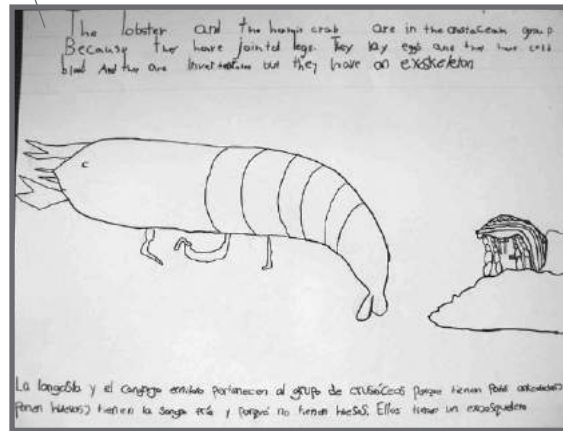 The lobster and the hermit crab are in the crustacean group
Because they have jointed legs. They lay eggs and they have cold
blood And the are invertebrates but they have an exoskeleton
La langosta y el cangrejo ermitaño pertenecen al grupo de crustáceos porque tienen patas articuladas,
ponen huevos, tienen la sangre fría y porque no tienen huesos. Ellos tienen un exoesqueleto